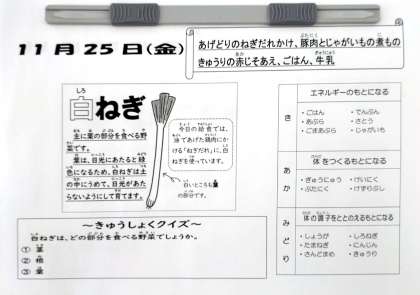 11月25日(金)
あげどりのねぎだれかけ、豚肉とじゃがいもの煮もの
きゅうりの赤じそあえ、ごはん、牛乳
白ねぎ
主に葉の部分を食べる野
菜です。
葉は、日光にあたると緑
色になるため、白ねぎは土
の中にうめて、日光があた
らないようにして育てます。
今日の給食では、
油であげた鶏肉にか
ける「ねぎだれ」に、白
ねぎを使っています。
白いところも葉
の部分です。
～きゅうしょくクイズ～
白ねぎは、どの部分を食べる野菜でしょうか。
① 茎
② 根
③ 葉
き
エネルギーのもとになる
・ごはん ・でんぷん
・あぶら ・さとう
・ごまあぶら ・じゃがいも
あか
体をつくるもとになる
・ぎゅうにゅう ・けいにく
・ぶたにく ・けずりぶし
みどり
体の調子をととのえるもとになる
・しょうが ・しろねぎ
・たまねぎ ・にんじん
・さんどまめ ・きゅうり